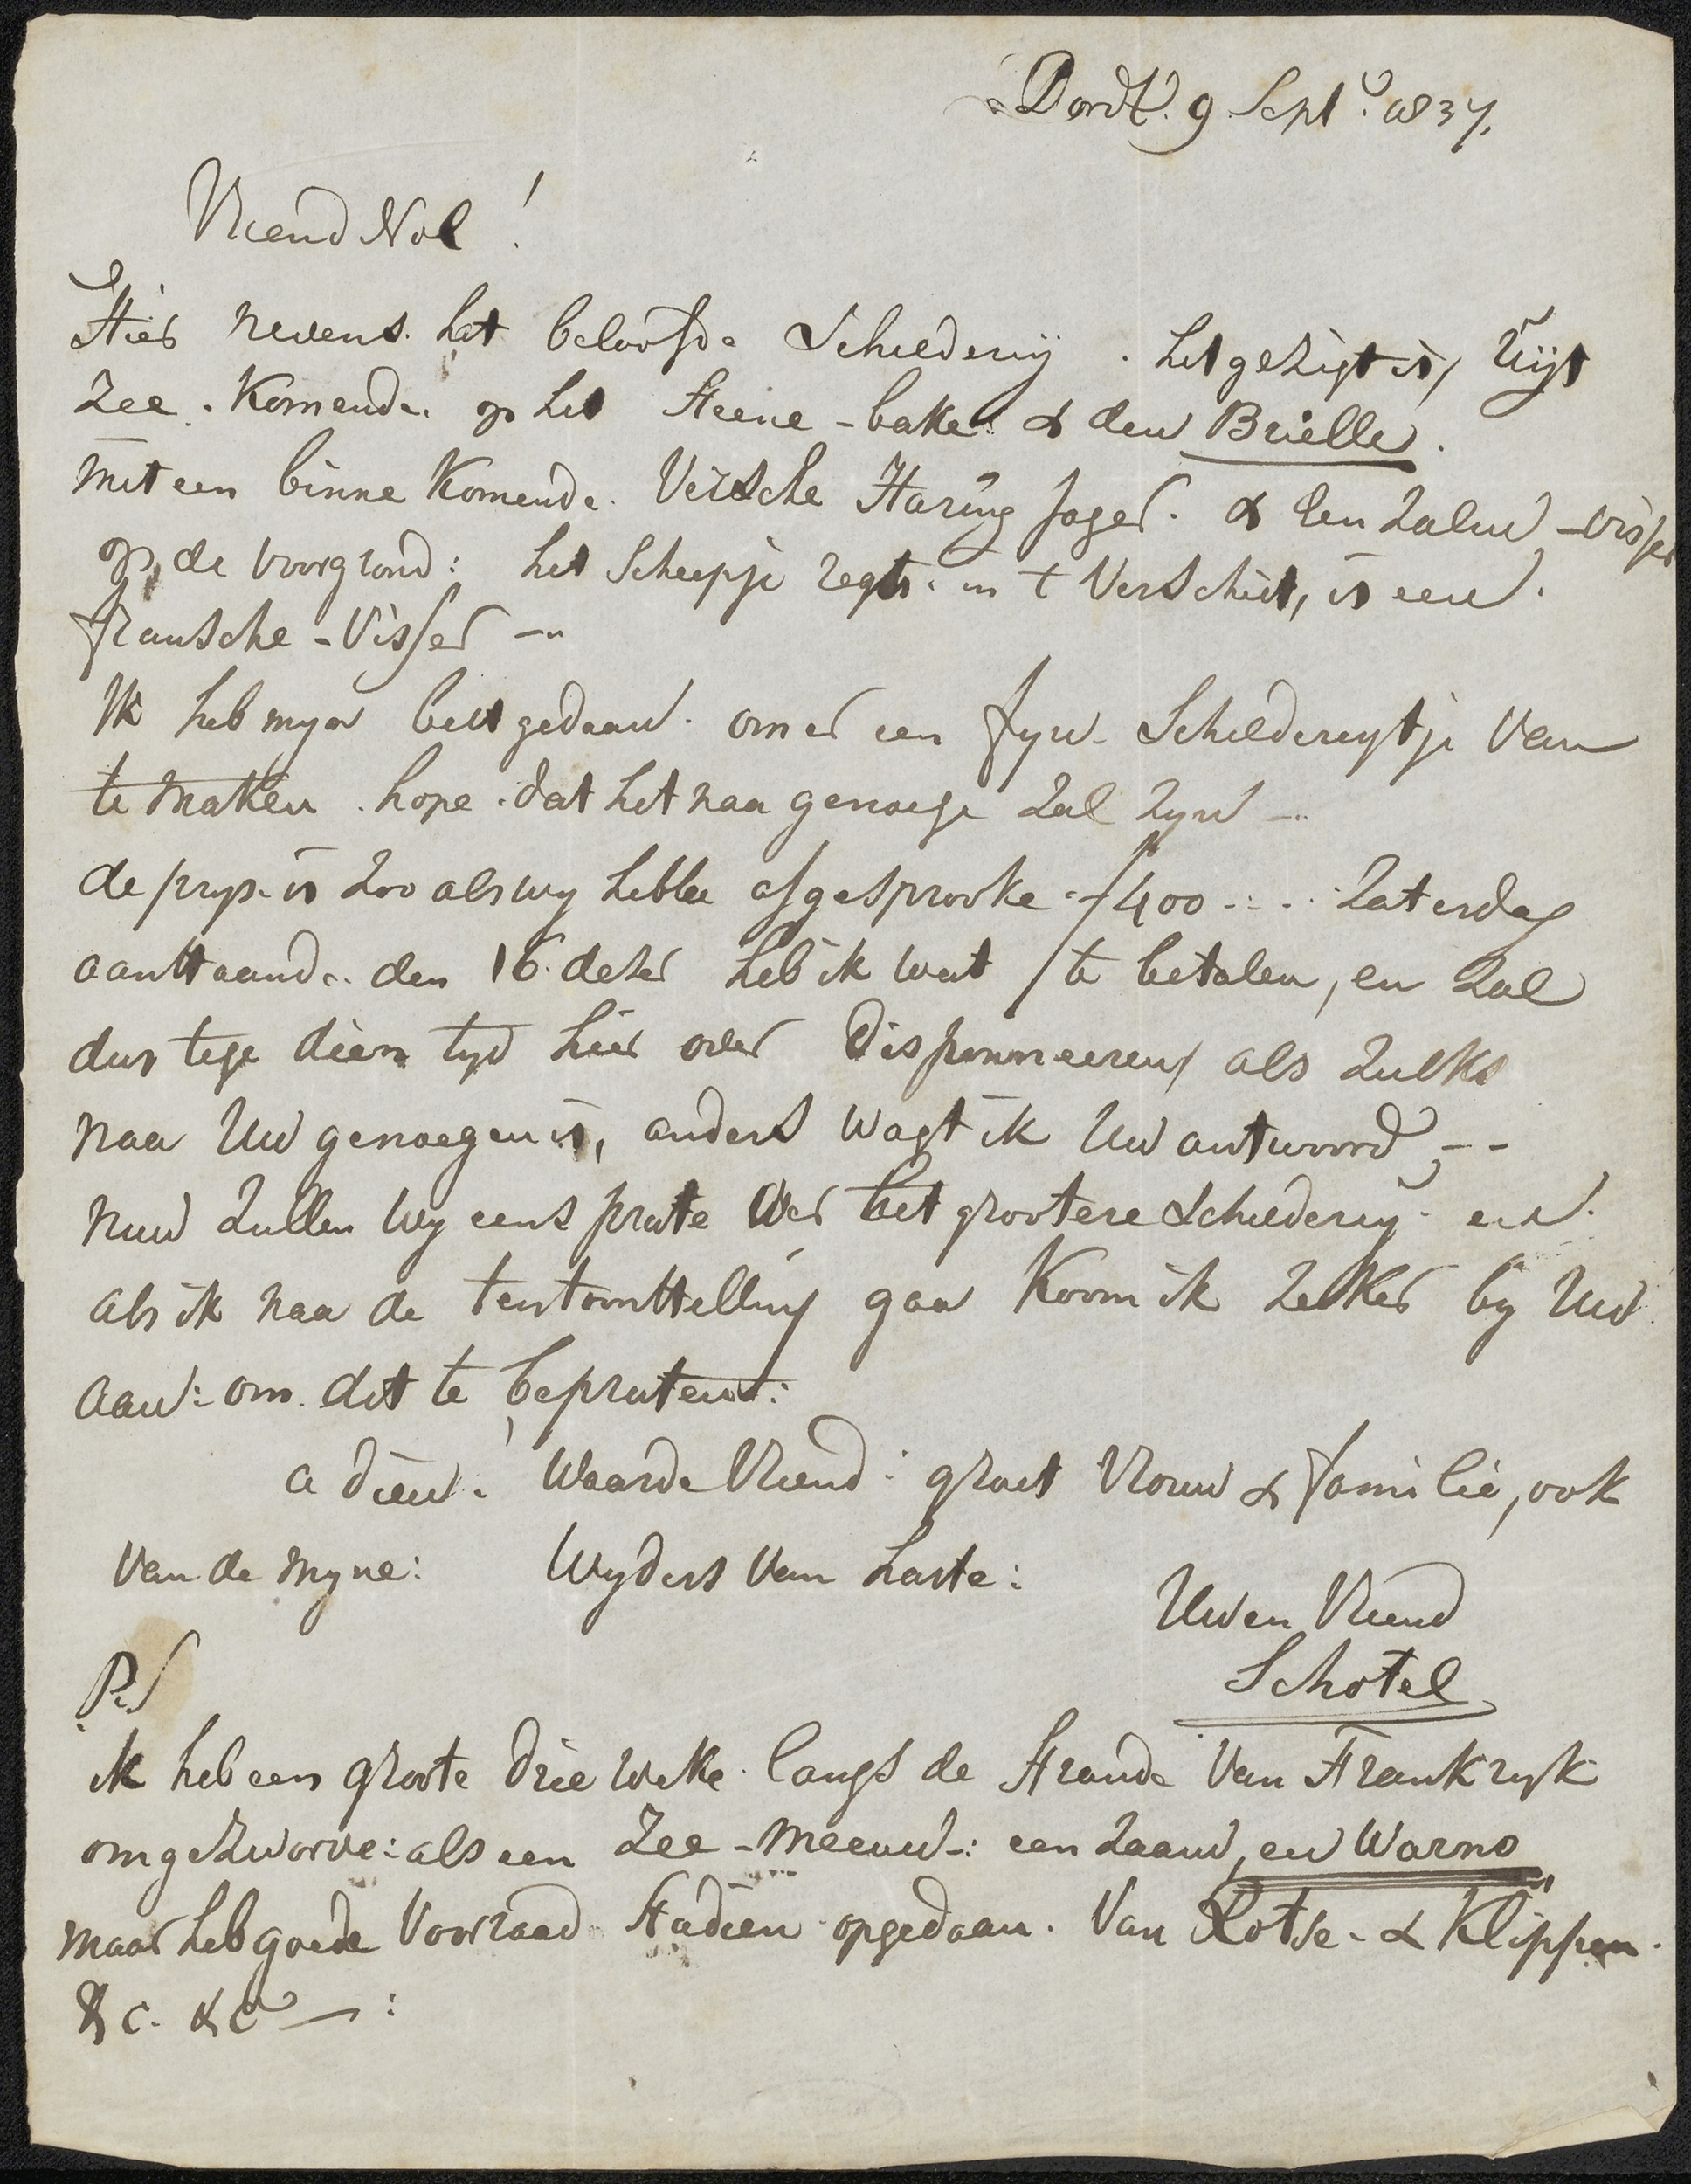 Dordt. 9 Sept. 1837.
Vriend Nol!
Hier nevens. het beloofde Schilderij. het gezigt is, Uijt
Zee. Komende. op het Steene-bake & den Brielle.
met een binne Komende. Versche Haring Jager. & een Zalm-visser
op de voorgrond: het Scheepje regts. in t Verschiet, is een.
fransche-Visser —
Ik heb myn best gedaan. om er een fyn Schildereytje Van
te maken. hope. dat het naa genoege Zal Zyn —
de prys. is Zoo als wy hebbe afgesprooke. f400.... Zaterdag
aanstaande. den 16. dezer heb ik wat te betalen, en Zal
dus tege dien tyd hier over Disponneeren, als Zulks
naa Uw genoegen is, anders wagt ik Uw antwoord, --
nuw Zullen Wy eens prate Over het grootere Schilderij. en.
als ik naa de tentoonstelling gaa Koom ik Zeker by Uw
aan: om. dit te bepraten:
a dieu. ! Waarde Vriend: groet Vrouw & familie, ook
Van de Myne: Wyders Van harte:
Uw en Vriend
Schotel
P.S
ik heb een groote drie weke. langs de Strande Van Frankryk
omgezworve: als een Zee-Meeuw-: een Zaand, en Warmo
maar heb goede Voorraad Studien opgedaan. Van Rotse. & Klippen.
&c. &c —: